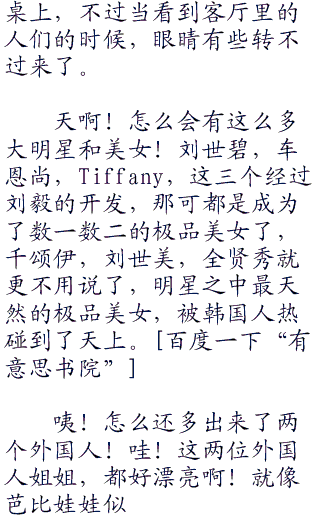 桌上，不过当看到客厅里的
人们的时候，眼睛有些转不
过来了。
天啊！怎么会有这么多
大明星和美女！刘世碧，车
恩尚，Tiffany，这三个经过
刘毅的开发，那可都是成为
了数一数二的极品美女了，
千颂伊，刘世美，全贤秀就
更不用说了，明星之中最天
然的极品美女，被韩国人热
碰到了天上。[百度一下“有
意思书院”]
咦！怎么还多出来了两
个外国人！哇！这两位外国
人姐姐，都好漂亮啊！就像
芭比娃娃似